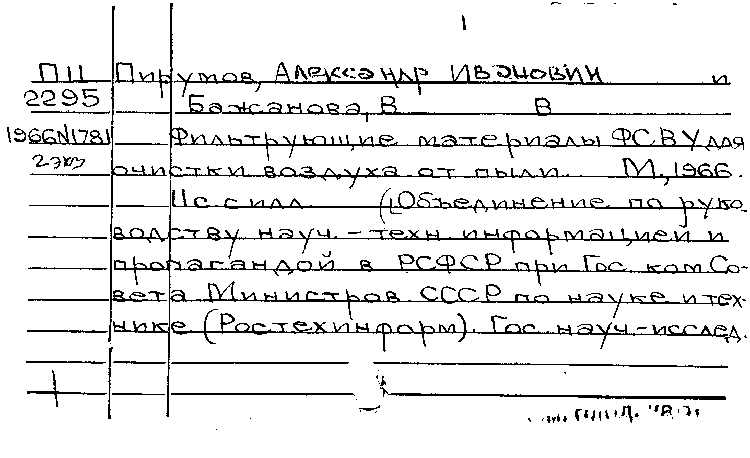 1
ПЦ Пирумов, Александр Иванович и
2295 Бажанова, В В
1966N1781 Фильтрующие материалы ФСВУ для
2 экз очистки воздуха от пыли. М., 1966.
11с с илл. (Объединение по руко-
водству науч.-техн информацией и
пропагандой в РСФСР при Гос ком Со-
вета Министров СССР по науке и тех-
нике (Ростехинформ). Гос науч-исслед.